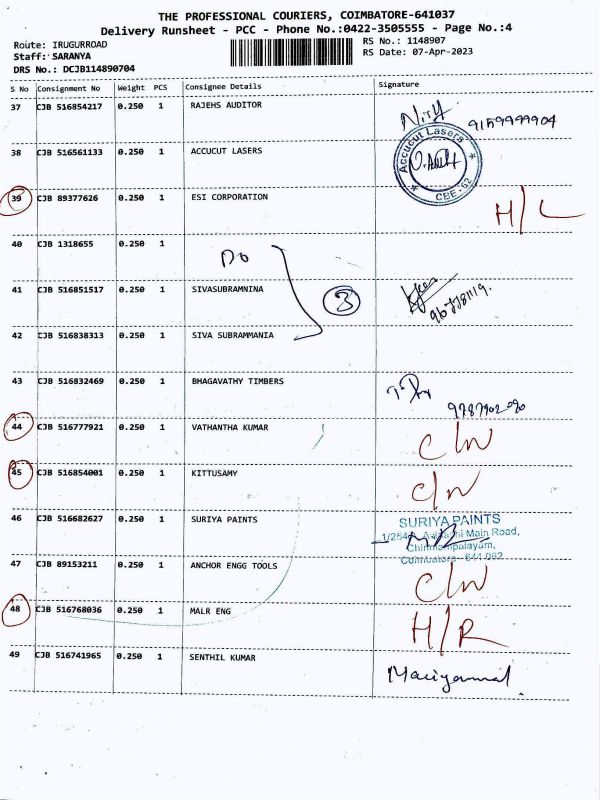 THE PROFESSIONAL COURIERS, COIMBATORE-641037
Delivery Runsheet - PCC - Phone No.:0422-3505555 - Page No.:4
Route: IRUGURROAD
RS No.: 1148907
Staff: SARANYA
RS Date: 07-Apr-2023
DRS No.: DCJB114890704
S No Consignment No Weight PCS Consignee Details Signature
37 CJB 516854217 0.250 1 RAJEHS AUDITOR
9159999904
38 CJB 516561133 0.250 1 ACCUCUT LASERS
Accucut Lasers
CBE-62
39 CJB 89377626 0.250 1 ESI CORPORATION
H/L
40 CJB 1318655 0.250 1
Do
41 CJB 516851517 0.250 1 SIVASUBRAMNINA
3
42 CJB 516838313 0.250 1 SIVA SUBRAMMANIA
43 CJB 516832469 0.250 1 BHAGAVATHY TIMBERS
44 CJB 516777921 0.250 1 VATHANTHA KUMAR
C/N
45 CJB 516854001 0.250 1 KITTUSAMY
C/N
46 CJB 516682627 0.250 1 SURIYA PAINTS
SURIYA PAINTS
Main Road,
47 CJB 89153211 0.250 1 ANCHOR ENGG TOOLS
C/N
48 CJB 516768036 0.250 1 MALR ENG
H/R
49 CJB 516741965 0.250 1 SENTHIL KUMAR
Mariyammal